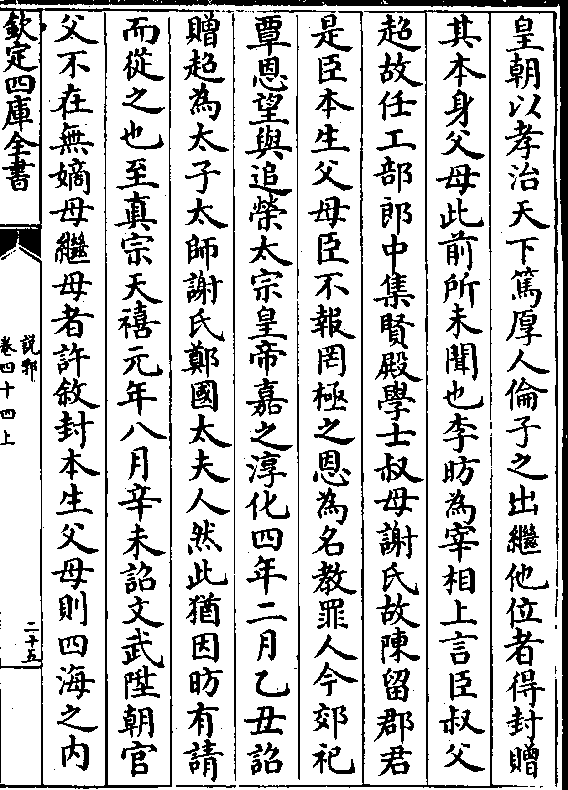 皇朝以孝治天下篤厚人倫子之出繼他位者得封贈
其本身父母此前所未聞也李昉為宰相上言臣叔父
超故任工部郎中集賢殿學士叔母謝氏故陳留郡君
是臣本生父母臣不報罔極之恩為名教罪人今郊祀
覃恩望與追榮太宗皇帝嘉之淳化四年二月乙丑詔
贈超為太子太師謝氏鄭國太夫人然此猶因昉有請
而從之也至真宗天禧元年八月辛未詔文武陞朝官
父不在無嫡母繼母者許敘封本生父母則四海之內
欽定四庫全書
說郛
卷四十四上
二十五